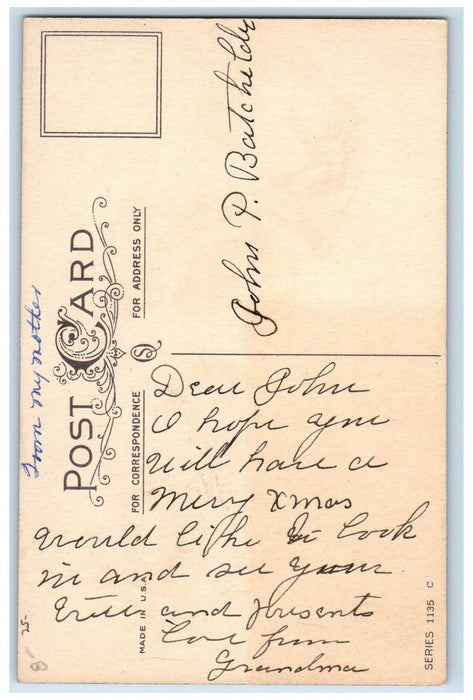 POST CARD
FOR ADDRESS ONLY
FOR CORRESPONDENCE
John P. Batchelder
From my mother
Dear John
I hope you
will have a
Merry Xmas
would like to look
in and see your
tree and presents
Love from
Grandma
MADE IN U.S.A.
SERIES 1135 C
25-